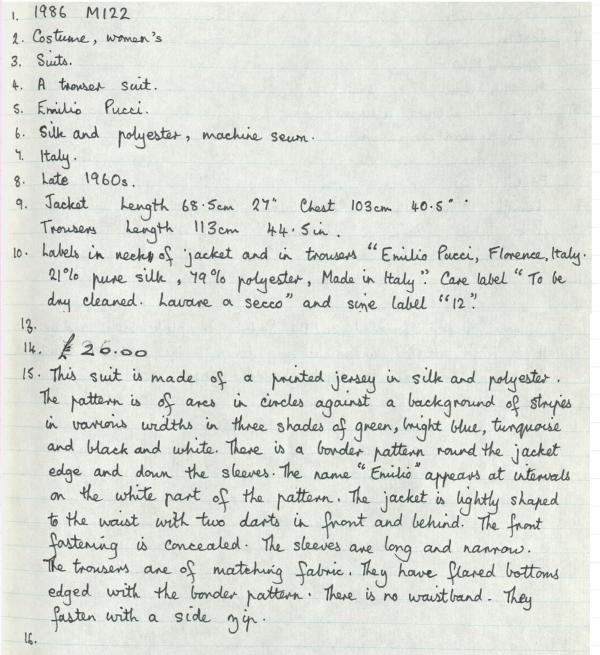 1. 1986 M122
2. Costume, women's
3. Suits.
4. A trouser suit.
5. Emilio Pucci.
6. Silk and polyester, machine sewn.
7. Italy.
8. Late 1960s.
9. Jacket Length 68.5cm 27" Chest 103cm 40.5"
Trousers Length 113cm 44.5in.
10. Labels in neck of jacket and in trousers "Emilio Pucci, Florence, Italy.
21% pure silk, 79% polyester, Made in Italy". Care label "To be
dry cleaned. Lavare a secco" and size label "12".
13.
14. £26.00
15. This suit is made of a printed jersey in silk and polyester.
The pattern is of arcs in circles against a background of stripes
in various widths in three shades of green, bright blue, turquoise
and black and white. There is a border pattern round the jacket
edge and down the sleeves. The name "Emilio" appears at intervals
on the white part of the pattern. The jacket is lightly shaped
to the waist with two darts in front and behind. The front
fastening is concealed. The sleeves are long and narrow.
The trousers are of matching fabric. They have flared bottoms
edged with the border pattern. There is no waistband. They
fasten with a side zip.
16.